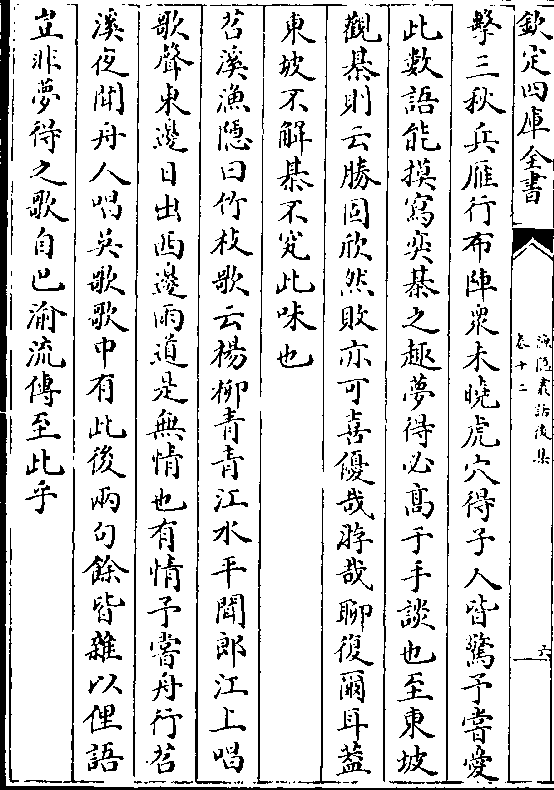 欽定四庫全書
漁隠叢話後集
卷十二
六
擊三秋兵雁行布陣衆未曉虎穴得子人皆驚予嘗愛
此數語能摸寫奕棊之趣夢得必髙于手談也至東坡
觀棊則云勝固欣然敗亦可喜優哉游哉聊復爾耳葢
東坡不解棊不究此味也
苕溪漁隠曰竹枝歌云楊柳青青江水平聞郎江上唱
歌聲東邊日出西邊雨道是無情也有情予嘗舟行苕
溪夜聞舟人唱吳歌歌中有此後兩句餘皆雜以俚語
豈非夢得之歌自巴渝流傳至此乎